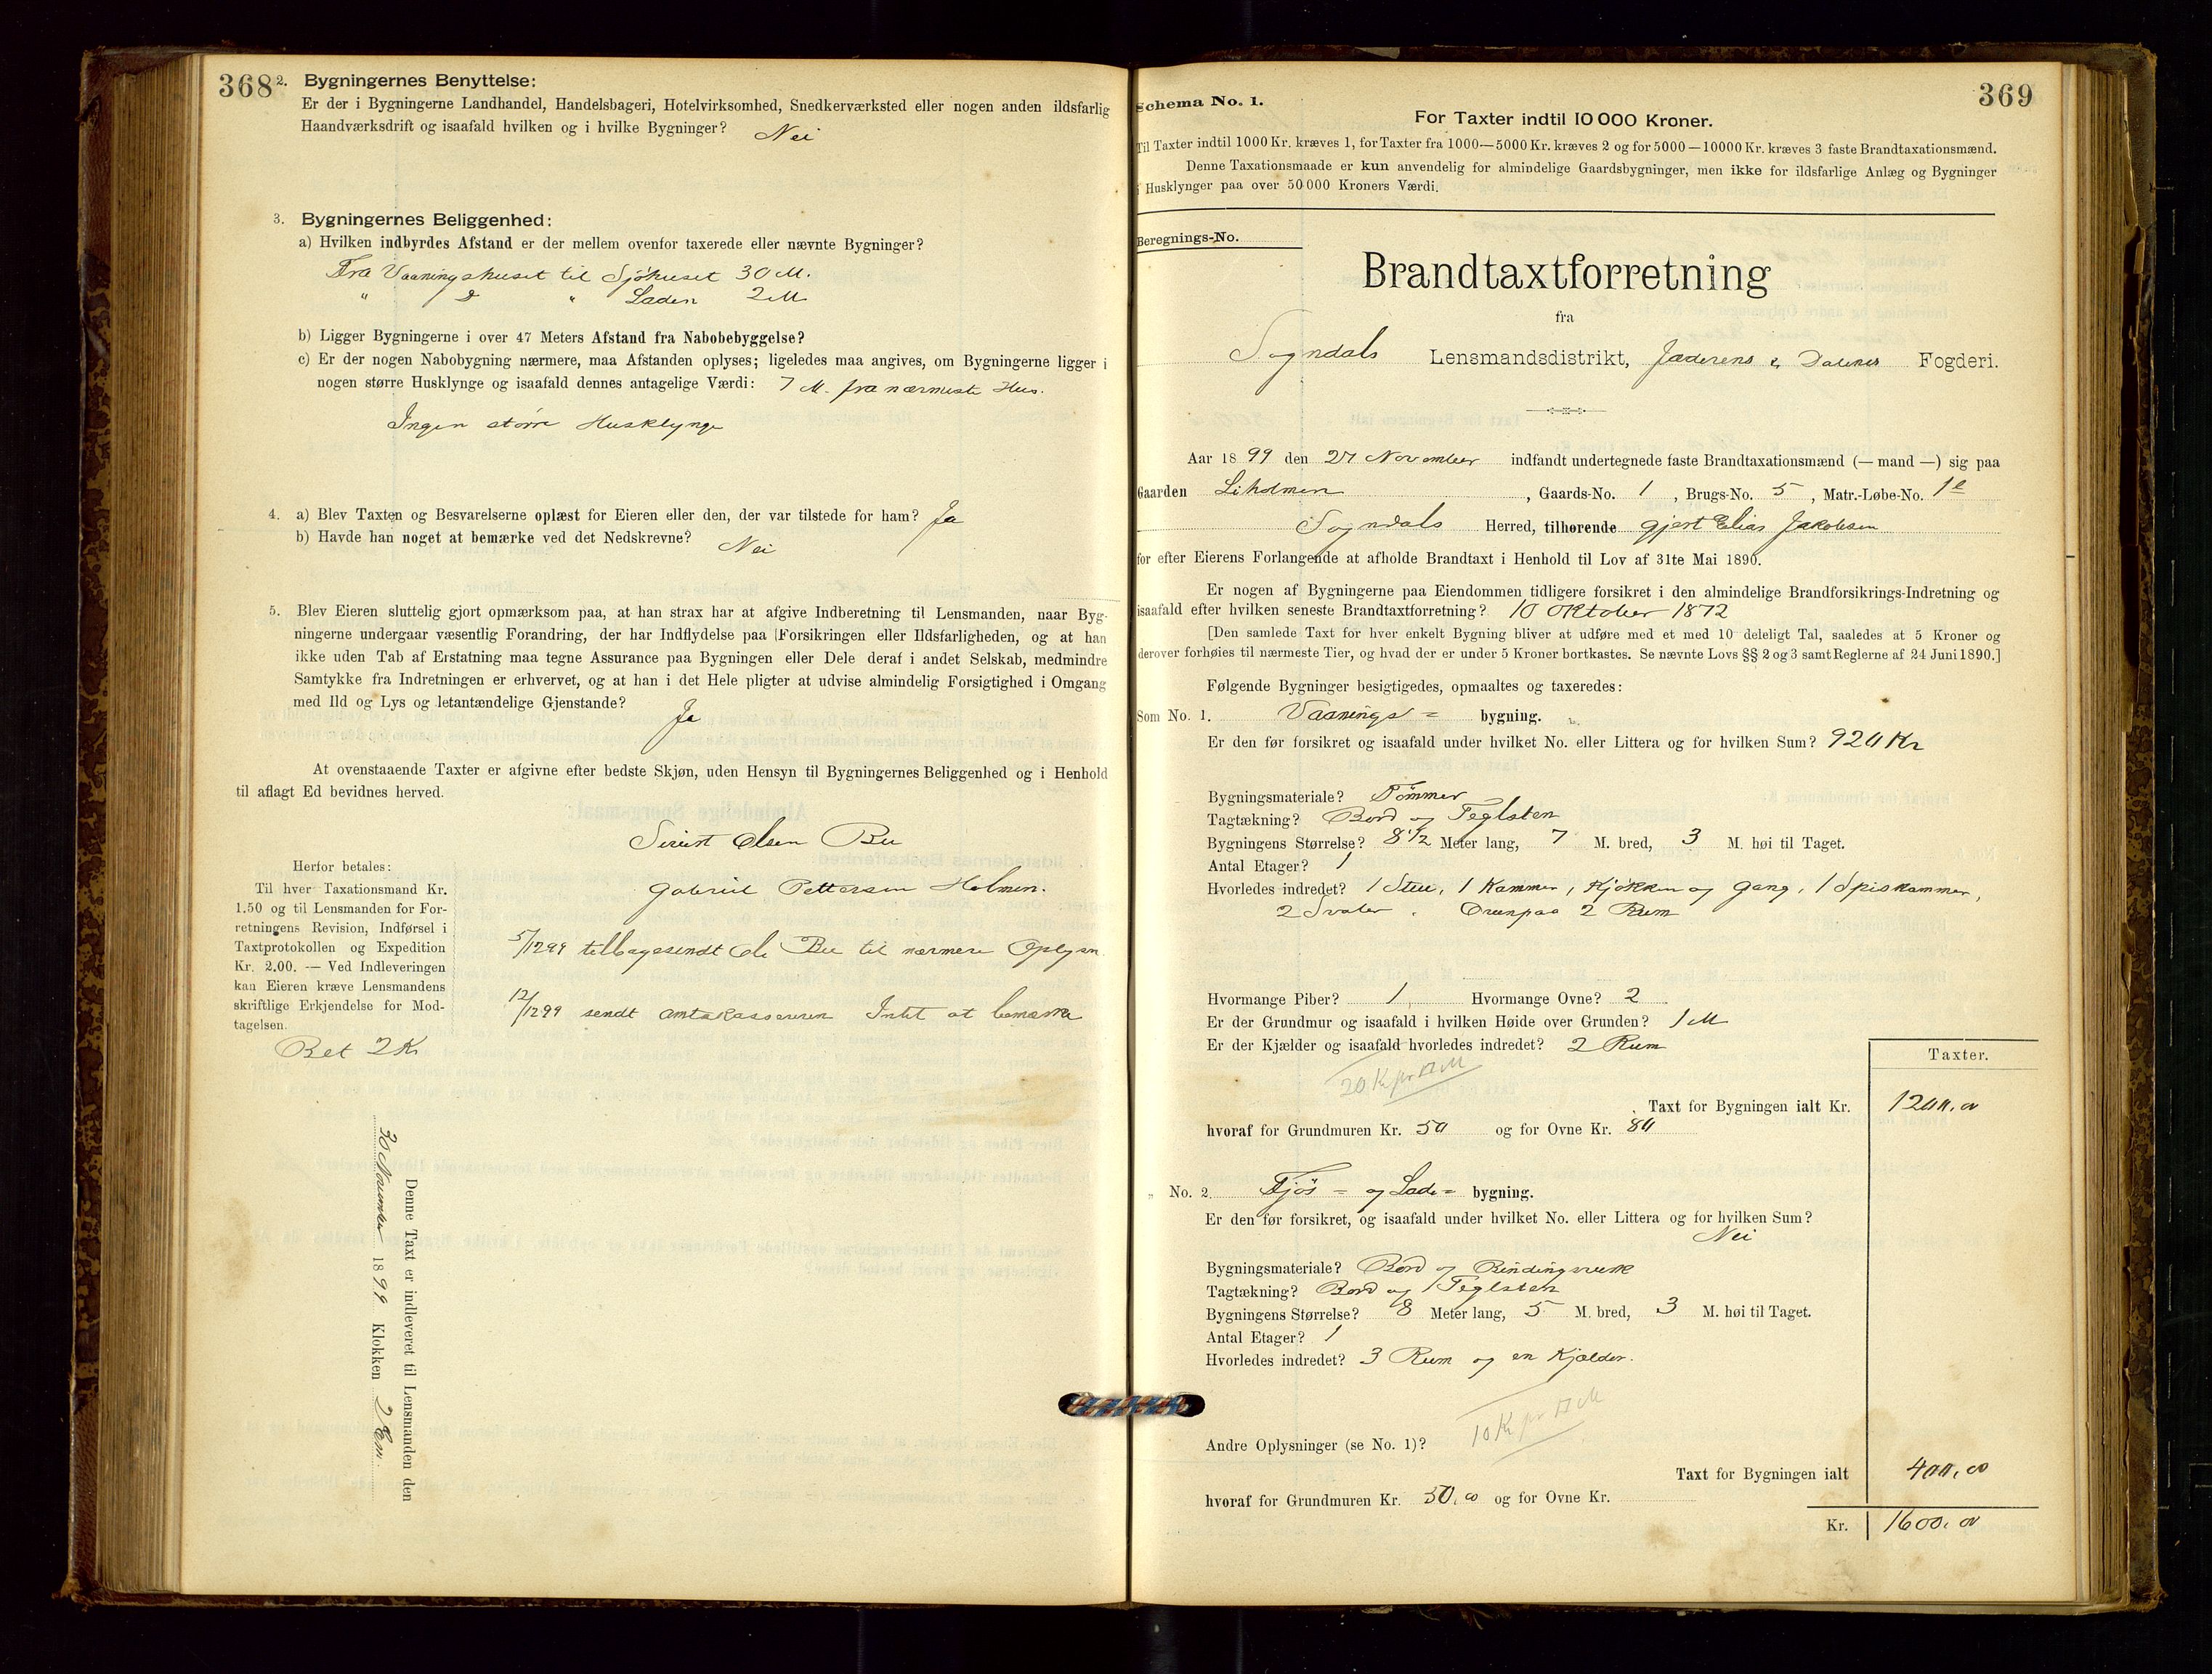 368
2. Bygningernes Benyttelse:
Er der i Bygningerne Landhandel, Handelsbageri, Hotelvirksomhed, Snedkerværksted eller nogen anden ildsfarlig
Haandværksdrift og isaafald hvilken og i hvilke Bygninger? Nei
3. Bygningernes Beliggenhed:
a) Hvilken indbyrdes Afstand er der mellem ovenfor taxerede eller nævnte Bygninger?
Fra Vaaningshuset til Sjöhuset 30 M.
" D " Laden 2 M
b) Ligger Bygningerne i over 47 Meters Afstand fra Nabobebyggelse?
c) Er der nogen Nabobygning nærmere, maa Afstanden oplyses; ligeledes maa angives, om Bygningerne ligger i
nogen større Husklynge og isaafald dennes antagelige Værdi: 7 M. fra nærmeste Hus.
Ingen større Husklynge
4. a) Blev Taxten og Besvarelserne oplæst for Eieren eller den, der var tilstede for ham? Ja
b) Havde han noget at bemærke ved det Nedskrevne? Nei
5. Blev Eieren sluttelig gjort opmærksom paa, at han strax har at afgive Indberetning til Lensmanden, naar Byg-
ningerne undergaar væsentlig Forandring, der har Indflydelse paa Forsikringen eller Ildsfarligheden, og at han
ikke uden Tab af Erstatning maa tegne Assurance paa Bygningen eller Dele deraf i andet Selskab, medmindre
Samtykke fra Indretningen er erhvervet, og at han i det Hele pligter at udvise almindelig Forsigtighed i Omgang
med Ild og Lys og letantændelige Gjenstande? Ja
At ovenstaaende Taxter er afgivne efter bedste Skjøn, uden Hensyn til Bygningernes Beliggenhed og i Henhold
til aflagt Ed bevidnes herved.
Sivert Olsen Bu
Gabriel Pettersen Holmen.
5/12 99 tilbagesendt Ole Bu til nærmere Oplysn.
12/12 99 sendt Amtskassereren Intet at bemærke
Herfor betales:
Til hver Taxationsmand Kr.
1.50 og til Lensmanden for For-
retningens Revision, Indførsel i
Taxtprotokollen og Expedition
Kr. 2.00. — Ved Indleveringen
kan Eieren kræve Lensmandens
skriftlige Erkjendelse for Mod-
tagelsen.
Bet 2 Kr
Denne Taxt er indleveret til Lensmanden den
30 November 1899 Klokken 2 Em.
369
Schema No. 1.
For Taxter indtil 10 000 Kroner.
Til Taxter indtil 1000 Kr. kræves 1, for Taxter fra 1000—5000 Kr. kræves 2 og for 5000—10000 Kr. kræves 3 faste Brandtaxationsmænd.
Denne Taxationsmaade er kun anvendelig for almindelige Gaardsbygninger, men ikke for ildsfarlige Anlæg og Bygninger
i Husklynger paa over 50 000 Kroners Værdi.
Beregnings-No.
Brandtaxtforretning
fra
Sogndals Lensmandsdistrikt, Jæderens & Dalenes Fogderi.
Aar 1899 den 27 November indfandt undertegnede faste Brandtaxationsmænd (— mand —) sig paa
Gaarden Liholmen, Gaards-No. 1, Brugs-No. 5, Matr.-Løbe-No. 1e
Sogndals Herred, tilhørende Gjert Elias Jakobsen
for efter Eierens Forlangende at afholde Brandtaxt i Henhold til Lov af 31te Mai 1890.
Er nogen af Bygningerne paa Eiendommen tidligere forsikret i den almindelige Brandforsikrings-Indretning og
isaafald efter hvilken seneste Brandtaxtforretning? 10 Oktober 1872
[Den samlede Taxt for hver enkelt Bygning bliver at udføre med et med 10 deleligt Tal, saaledes at 5 Kroner og
derover forhøies til nærmeste Tier, og hvad der er under 5 Kroner bortkastes. Se nævnte Lovs §§ 2 og 3 samt Reglerne af 24 Juni 1890.]
Følgende Bygninger besigtigedes, opmaaltes og taxeredes:
Som No. 1. Vaanings= bygning.
Er den før forsikret og isaafald under hvilket No. eller Littera og for hvilken Sum? 920 Kr
Bygningsmateriale? Tømmer
Tagtækning? Bord og Teglsten
Bygningens Størrelse? 8 1/2 Meter lang, 7 M. bred, 3 M. høi til Taget.
Antal Etager? 1
Hvorledes indredet? 1 Stue, 1 Kammer, Kjøkken og Gang, 1 Spiskammer,
2 Svaler. Ovenpaa 2 Rum
Hvormange Piber? 1, Hvormange Ovne? 2
Er der Grundmur og isaafald i hvilken Høide over Grunden? 1 M
Er der Kjælder og isaafald hvorledes indredet? 2 Rum
20 Kr pr □ M
Taxter.
Taxt for Bygningen ialt Kr. 1200,00
hvoraf for Grundmuren Kr. 50 og for Ovne Kr. 80
" No. 2. Fjös= og Lade= bygning.
Er den før forsikret, og isaafald under hvilket No. eller Littera og for hvilken Sum?
Nei
Bygningsmateriale? Bord og Bindingsverk
Tagtækning? Bord og Teglsten
Bygningens Størrelse? 8 Meter lang, 5 M. bred, 3 M. høi til Taget.
Antal Etager? 1
Hvorledes indredet? 3 Rum og en Kjælder.
10 Kr pr □ M
Andre Oplysninger (se No. 1)?
Taxt for Bygningen ialt 400,00
hvoraf for Grundmuren Kr. 50,00 og for Ovne Kr.
Kr. 1600,00